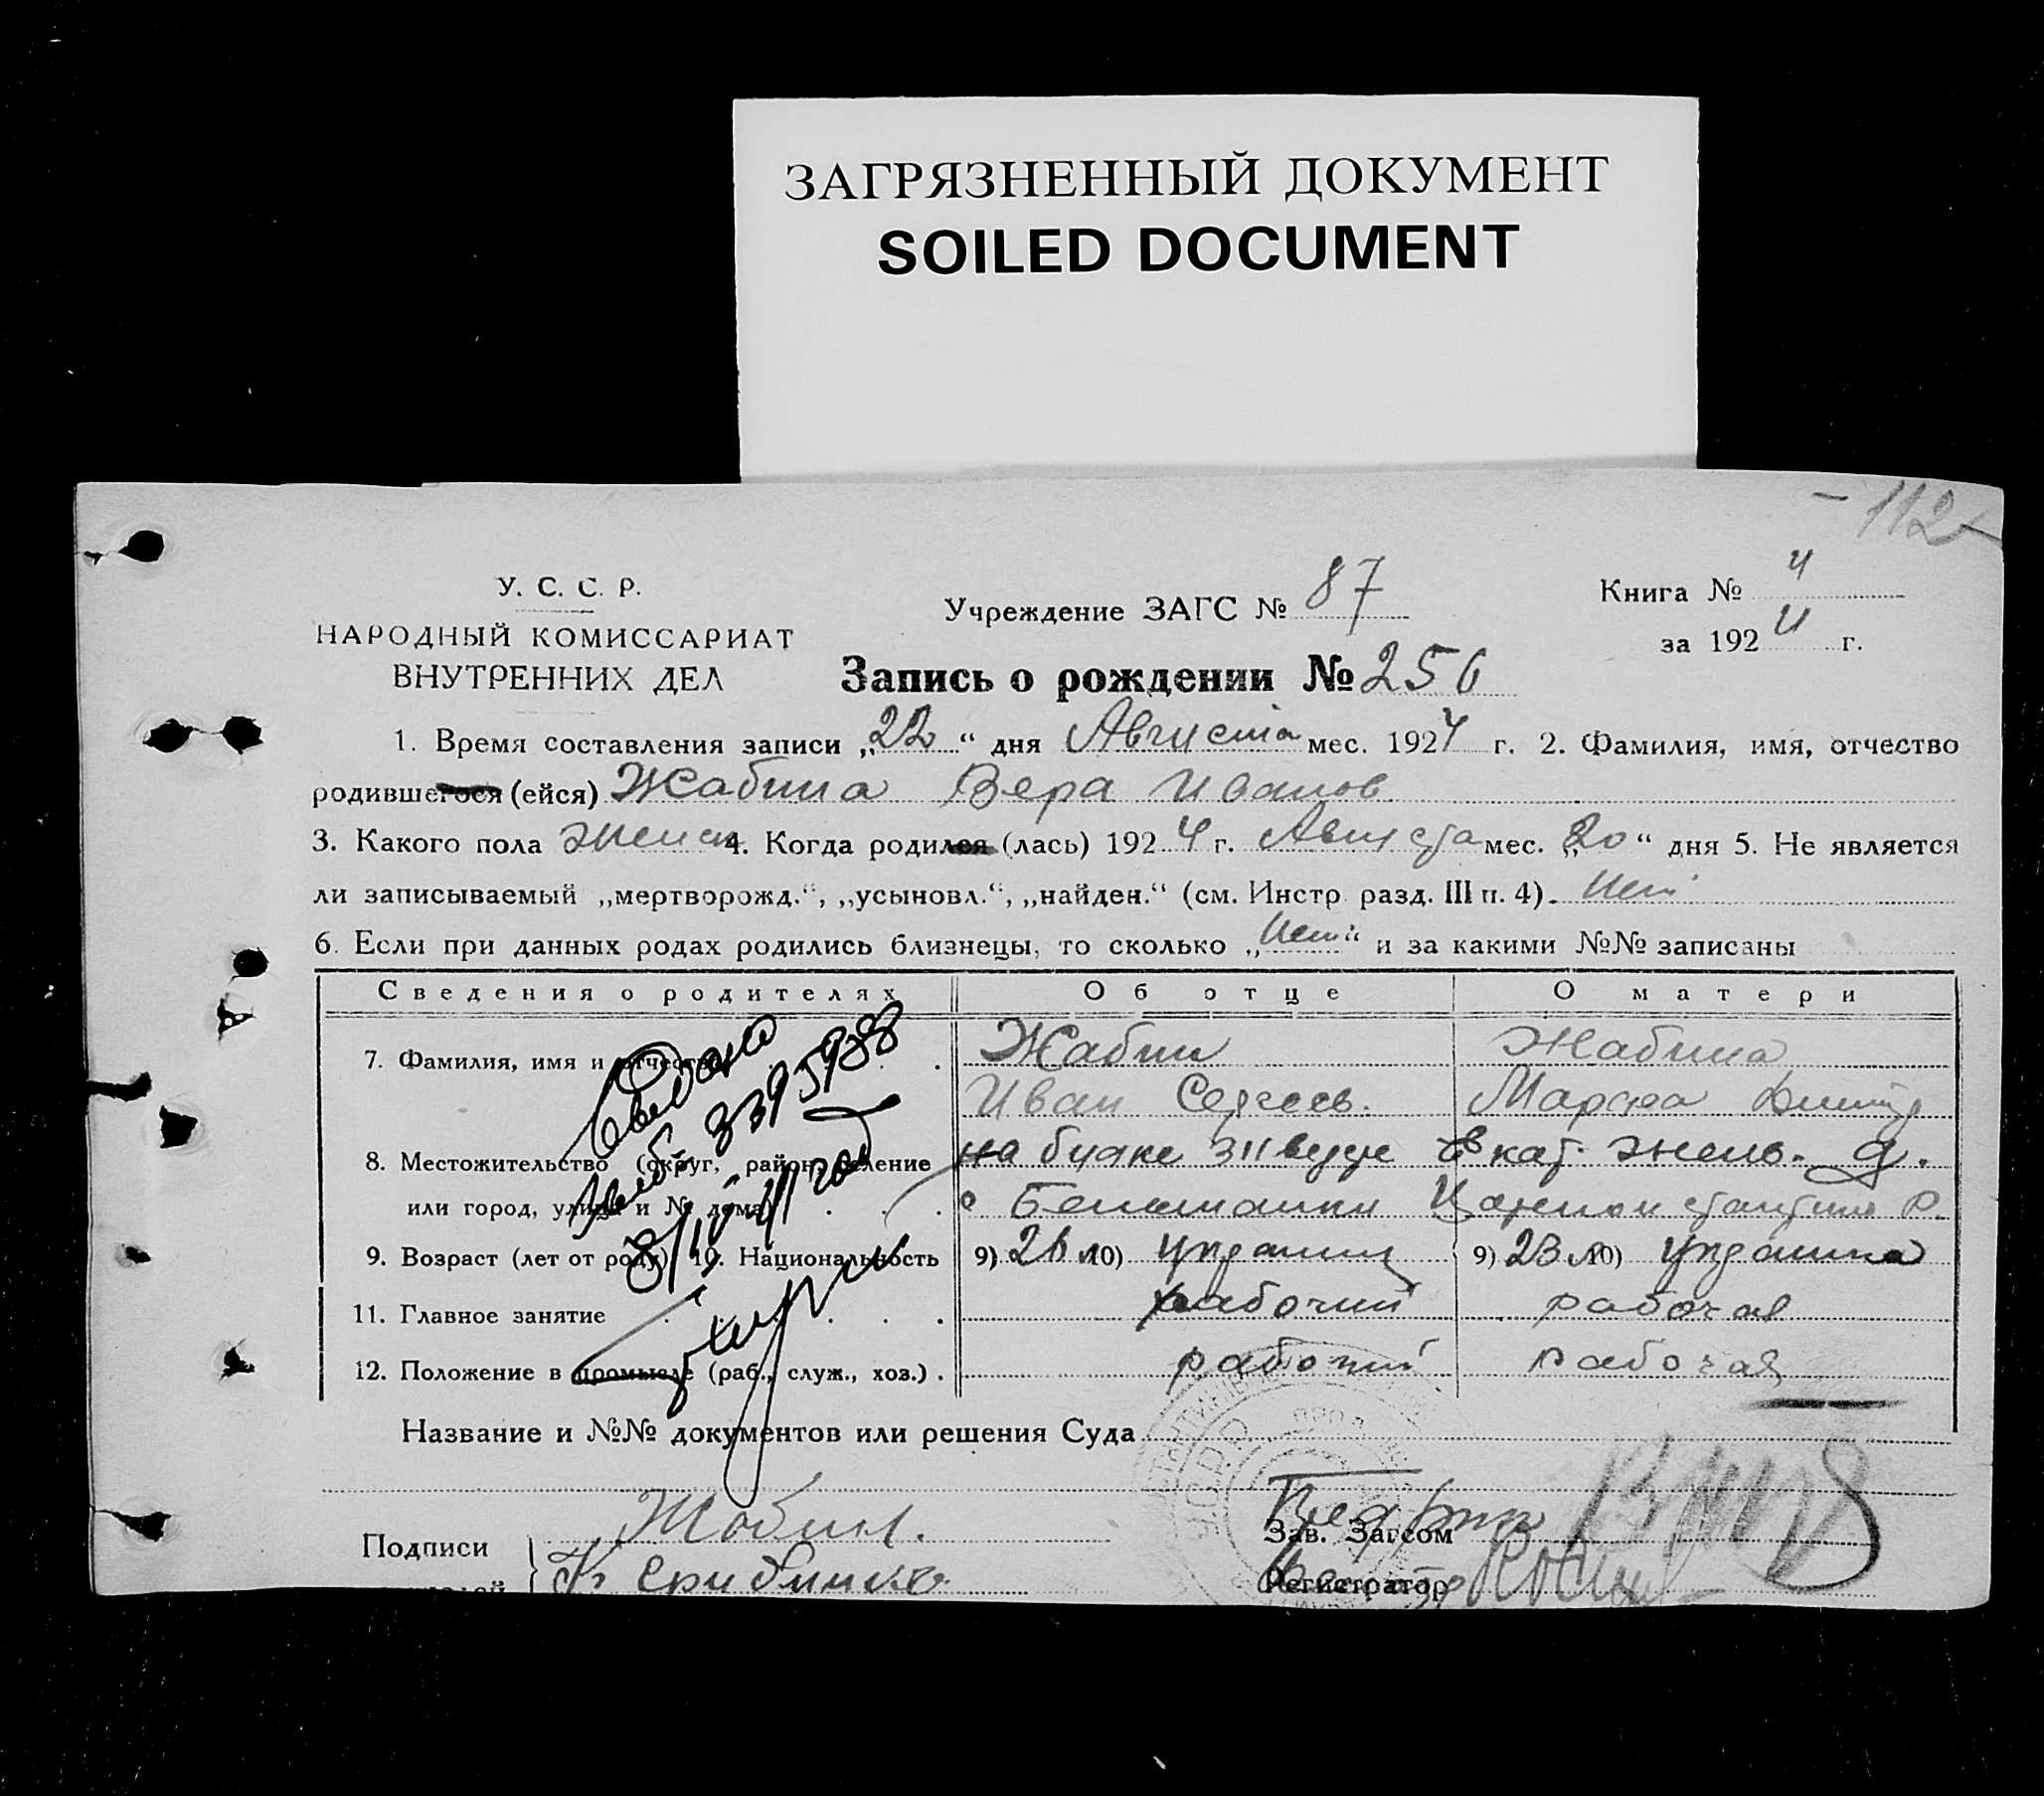 ЗАГРЯЗНЕННЫЙ ДОКУМЕНТ
SOILED DOCUMENT
- 112 -
У. С. С. Р.
НАРОДНЫЙ КОМИССАРИАТ
ВНУТРЕННИХ ДЕЛ
Учреждение ЗАГС № 87
Книга № 4
за 1924 г.
Запись о рождении № 256
1. Время составления записи „22“ дня Августа мес. 1924 г. 2. Фамилия, имя, отчество
родившегося (ейся) Жабина Вера Иванов
3. Какого пола женск 4. Когда родился (лась) 1924 г. Августа мес. „20“ дня 5. Не является
ли записываемый „мертворожд.“, „усыновл.“, „найден.“ (см. Инстр. разд. III п. 4). Нет
6. Если при данных родах родились близнецы, то сколько „Нет“ и за какими №№ записаны
Сведения о родителях Об отце О матери
7. Фамилия, имя и отчество Жабин Жабина
Иван Сергеев. Марфа
8. Местожительство (округ, район, селение на
или город, улица и № дома)
9. Возраст (лет от роду) 10. Национальность 9) 10) 9) 23 л 10)
11. Главное занятие рабочий рабочая
12. Положение в промысле (раб., служ., хоз.) рабочий рабочая
3395988
Название и №№ документов или решения Суда
Подписи Жабин.
Зав. Загсом
Регистратор